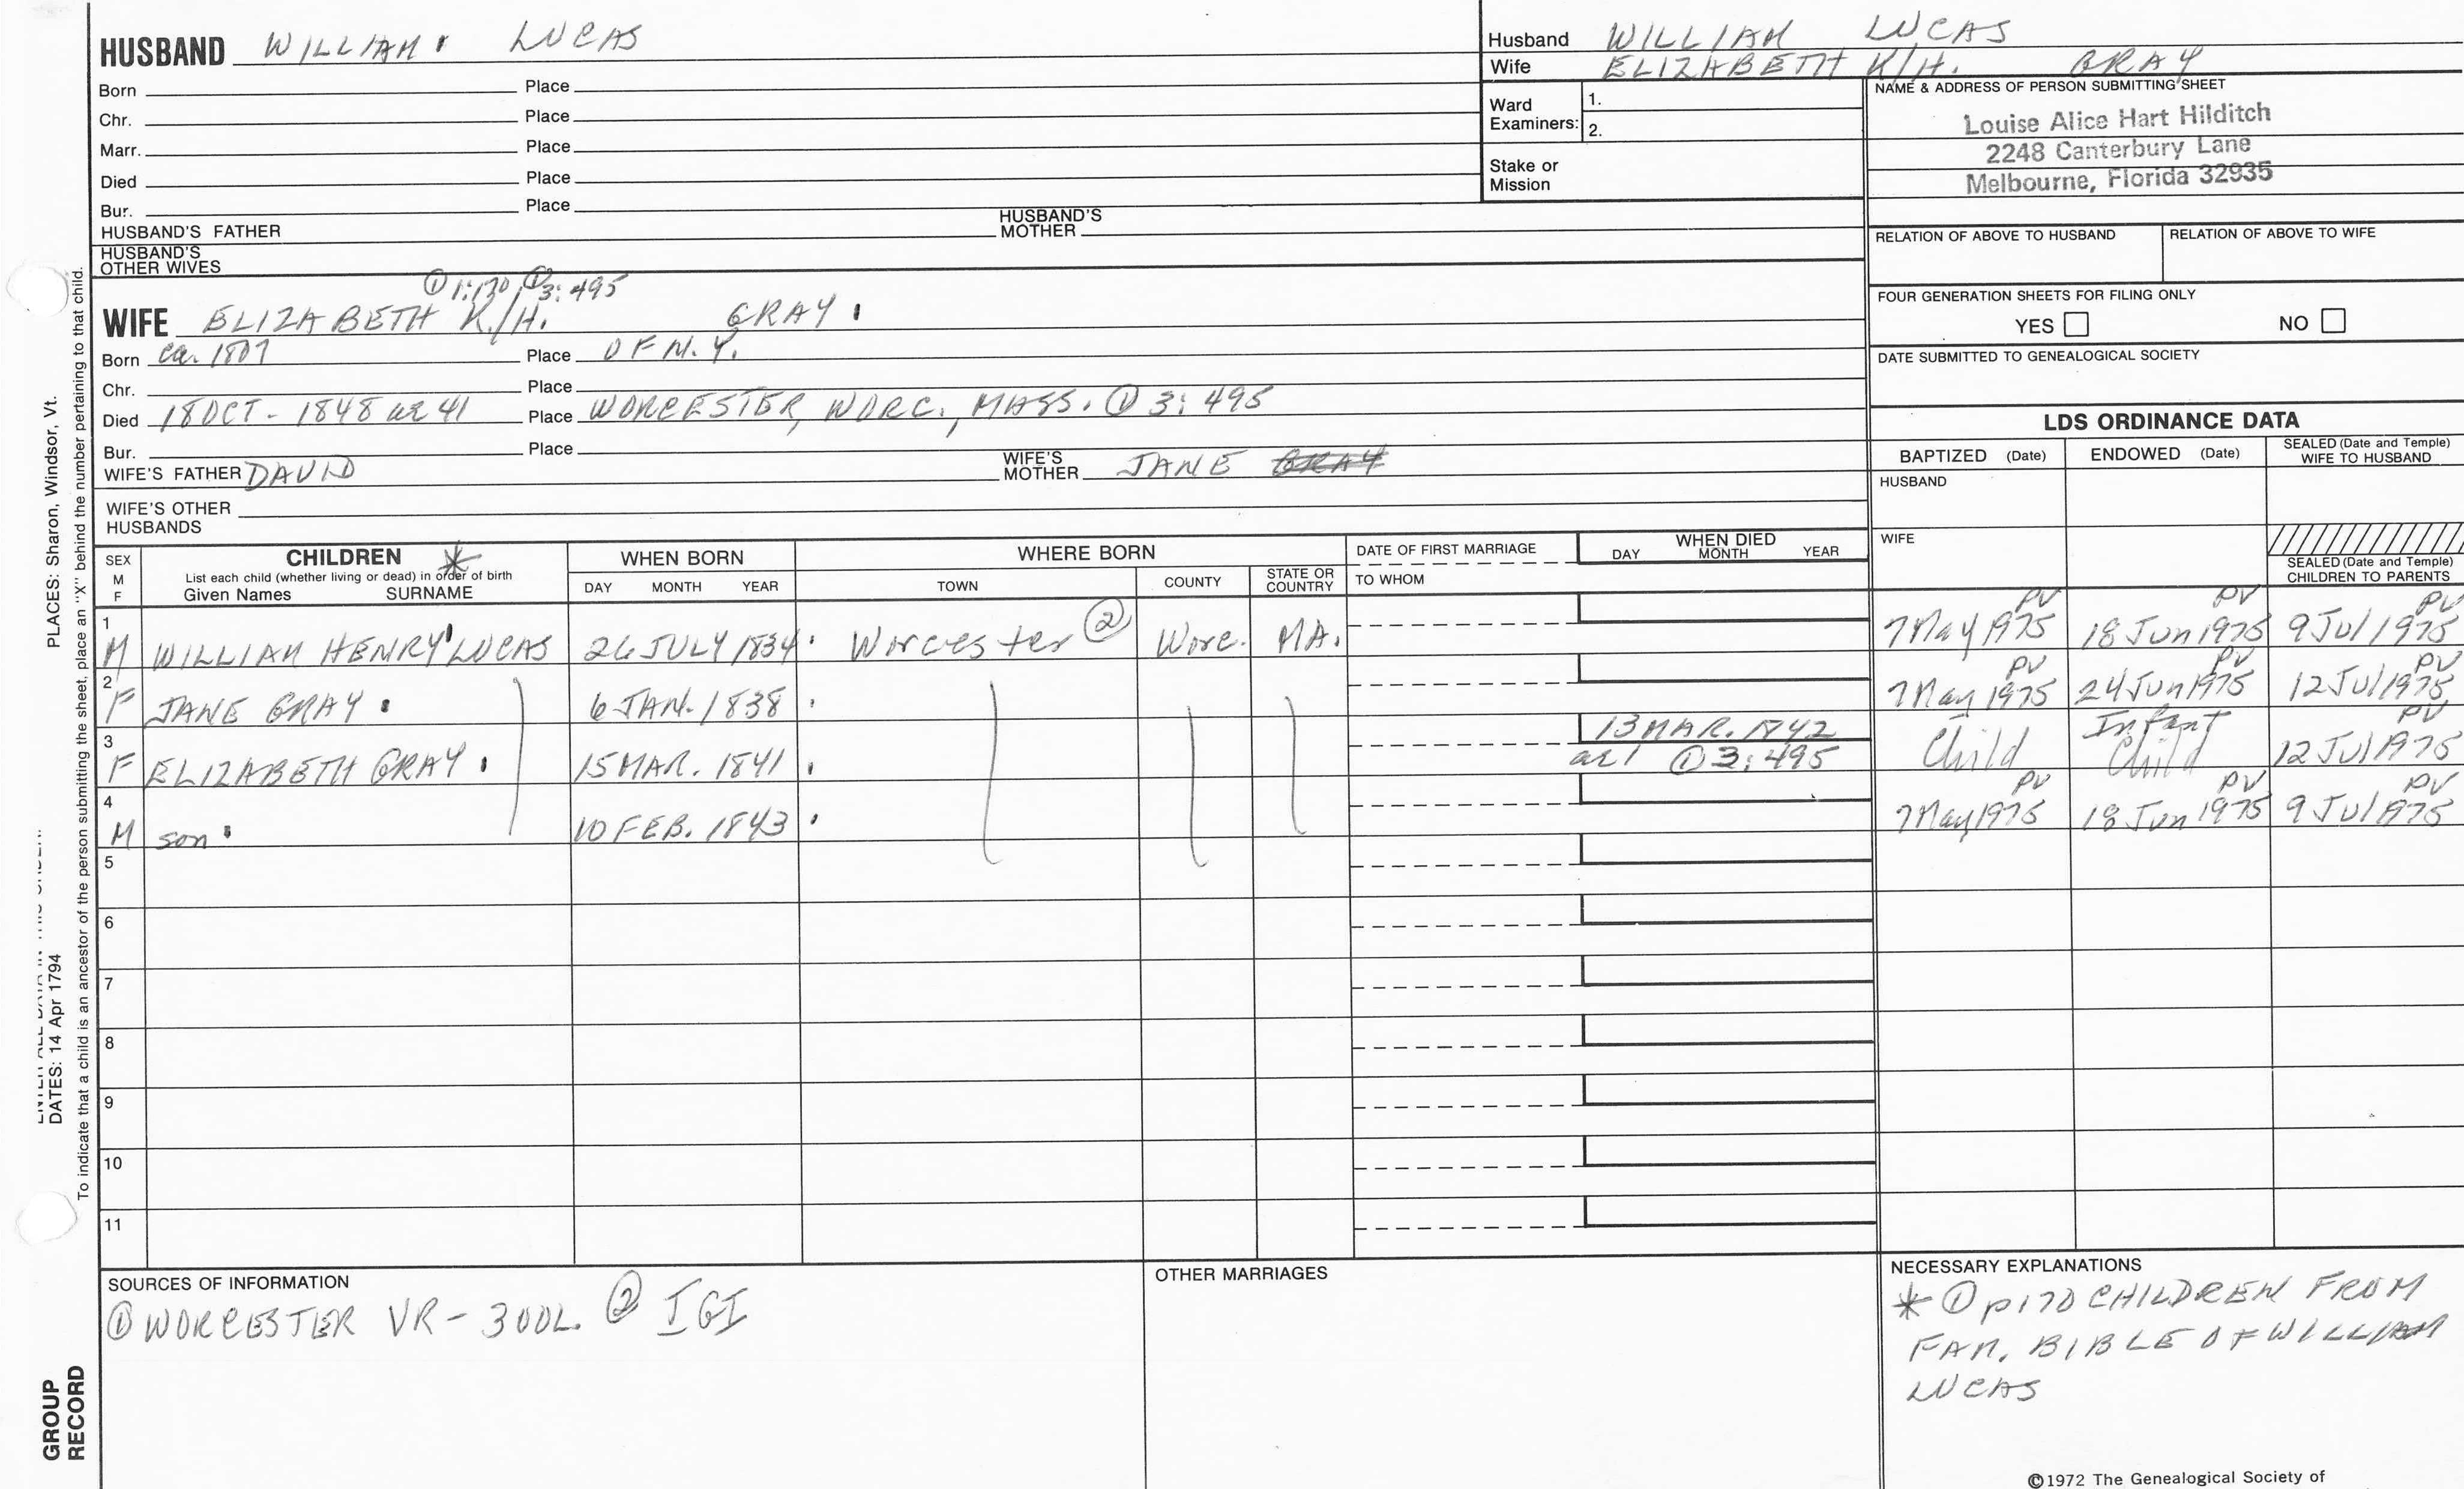 HUSBAND WILLIAM LUCAS
Born Place
Chr. Place
Marr. Place
Died Place
Bur. Place
HUSBAND'S FATHER HUSBAND'S MOTHER
HUSBAND'S OTHER WIVES
Husband WILLIAM LUCAS
Wife ELIZABETH K/H. GRAY
Ward Examiners: 1.
2.
Stake or Mission
NAME & ADDRESS OF PERSON SUBMITTING SHEET
Louise Alice Hart Hilditch
2248 Canterbury Lane
Melbourne, Florida 32935
RELATION OF ABOVE TO HUSBAND RELATION OF ABOVE TO WIFE
FOUR GENERATION SHEETS FOR FILING ONLY
YES NO
DATE SUBMITTED TO GENEALOGICAL SOCIETY
① 1:170, ① 3:495
WIFE ELIZABETH K./H. GRAY
Born ca. 1807 Place OF N.Y.
Chr. Place
Died 18 OCT- 1848 ae 41 Place WORCESTER, WORC., MASS. ① 3:495
Bur. Place
WIFE'S FATHER DAVID WIFE'S MOTHER JANE GRAY
WIFE'S OTHER HUSBANDS
LDS ORDINANCE DATA
BAPTIZED (Date) ENDOWED (Date) SEALED (Date and Temple) WIFE TO HUSBAND
HUSBAND
WIFE
SEALED (Date and Temple) CHILDREN TO PARENTS
SEX M F CHILDREN * WHEN BORN WHERE BORN DATE OF FIRST MARRIAGE WHEN DIED
List each child (whether living or dead) in order of birth
Given Names SURNAME DAY MONTH YEAR TOWN COUNTY STATE OR COUNTRY TO WHOM DAY MONTH YEAR
1 M WILLIAM HENRY LUCAS 26 JULY 1834 Worcester ② Worc. MA. 7 May 1975 PV 18 Jun 1975 PV 9 Jul 1975 PV
2 F JANE GRAY 6 JAN. 1838 7 May 1975 PV 24 Jun 1975 PV 12 Jul 1975 PV
3 F ELIZABETH GRAY 15 MAR. 1841 13 MAR. 1842 ae 1 ① 3:495 Child Infant Child 12 Jul 1975 PV
4 M son 10 FEB. 1843 7 May 1975 PV 18 Jun 1975 PV 9 Jul 1975 PV
5
6
7
8
9
10
11
SOURCES OF INFORMATION
① WORCESTER VR - 300L. ② IGI
OTHER MARRIAGES
NECESSARY EXPLANATIONS
* ① p170 CHILDREN FROM
FAM. BIBLE OF WILLIAM
LUCAS
©1972 The Genealogical Society of
PLACES: Sharon, Windsor, Vt.
DATES: 14 Apr 1794
To indicate that a child is an ancestor of the person submitting the sheet, place an "X" behind the number pertaining to that child.
GROUP
RECORD